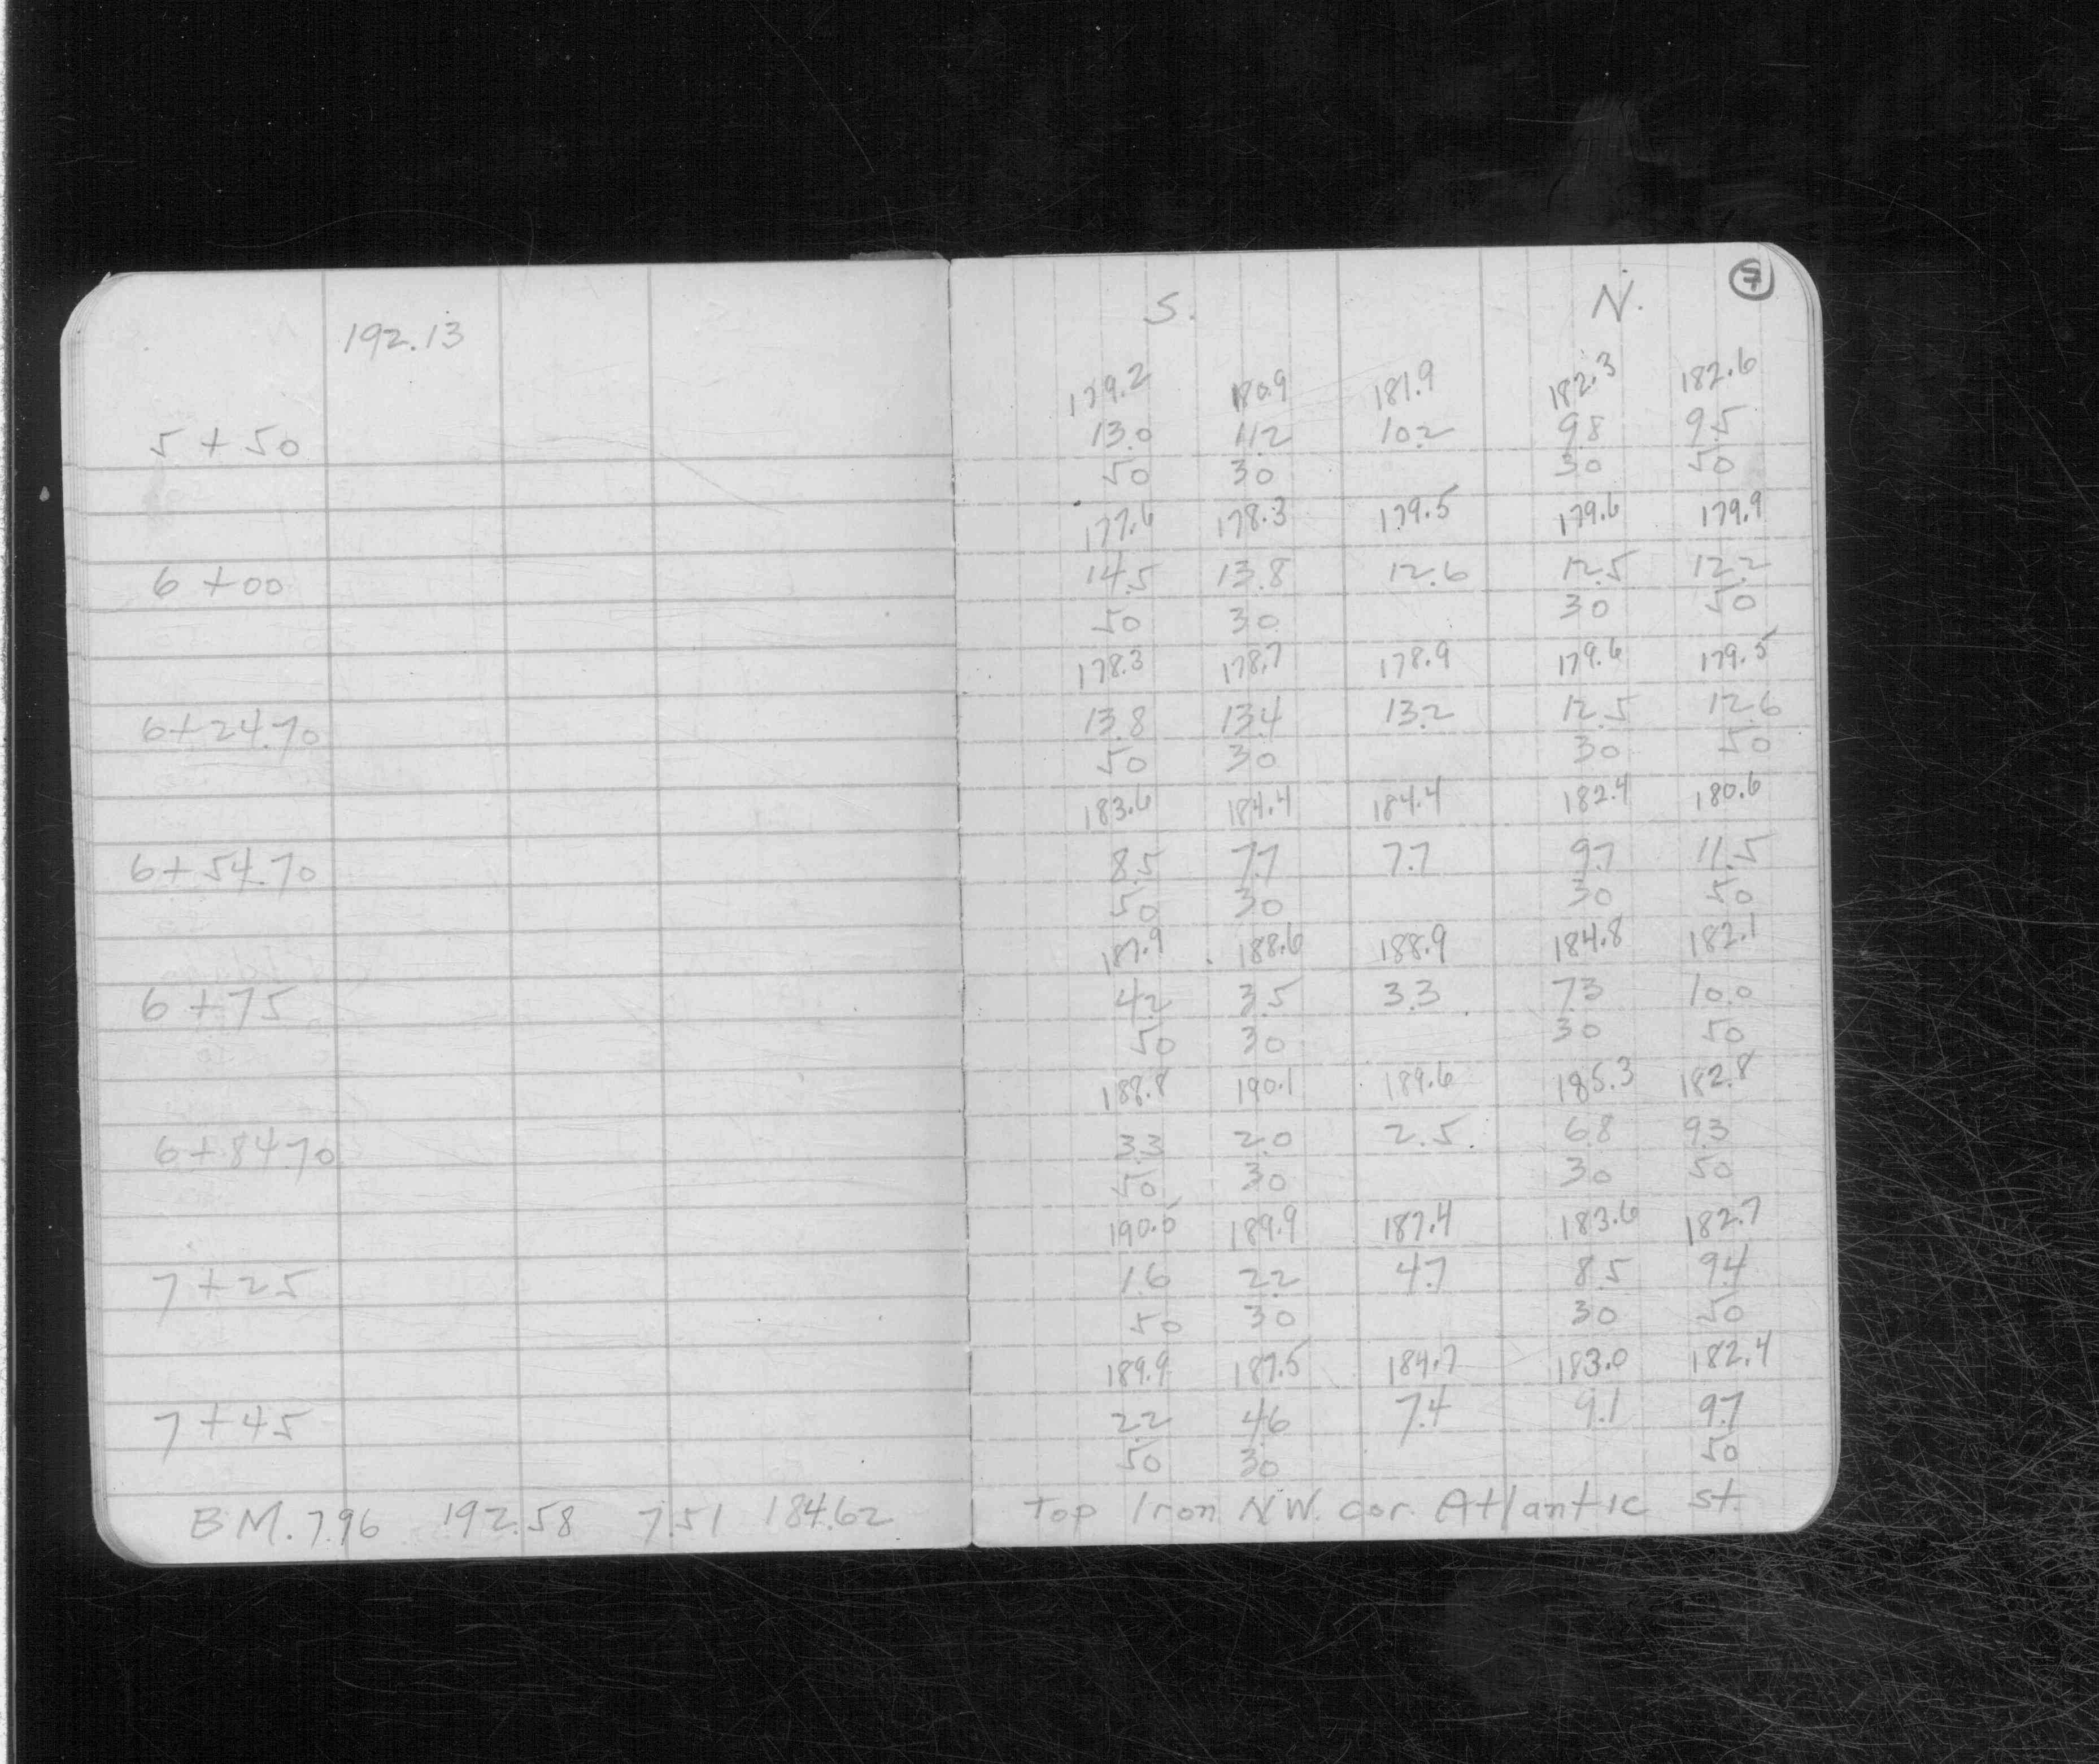 7
S. N.
192.13
179.2 180.9 181.9 182.3 182.6
5+50 13.0 11.2 10.2 9.8 9.5
50 30 30 50
177.6 178.3 179.5 179.6 179.9
6+00 14.5 13.8 12.6 12.5 12.2
50 30 30 50
178.3 178.7 178.9 179.6 179.5
6+24.70 13.8 13.4 13.2 12.5 12.6
50 30 30 50
183.6 184.4 184.4 182.4 180.6
6+54.70 8.5 7.7 7.7 9.7 11.5
50 30 30 50
187.9 188.6 188.9 184.8 182.1
6+75 4.2 3.5 3.3 7.3 10.0
50 30 30 50
188.8 190.1 189.6 185.3 182.8
6+84.70 3.3 2.0 2.5 6.8 9.3
50 30 30 50
189.9 187.4 183.6 182.7
7+25 1.6 2.2 4.7 8.5 9.4
50 30 30 50
189.9 187.5 184.7 183.0 182.4
7+45 2.2 4.6 7.4 9.1 9.7
50 30 50
BM. 7.96 192.58 7.51 184.62 Top Iron N.W. cor. Atlantic st.